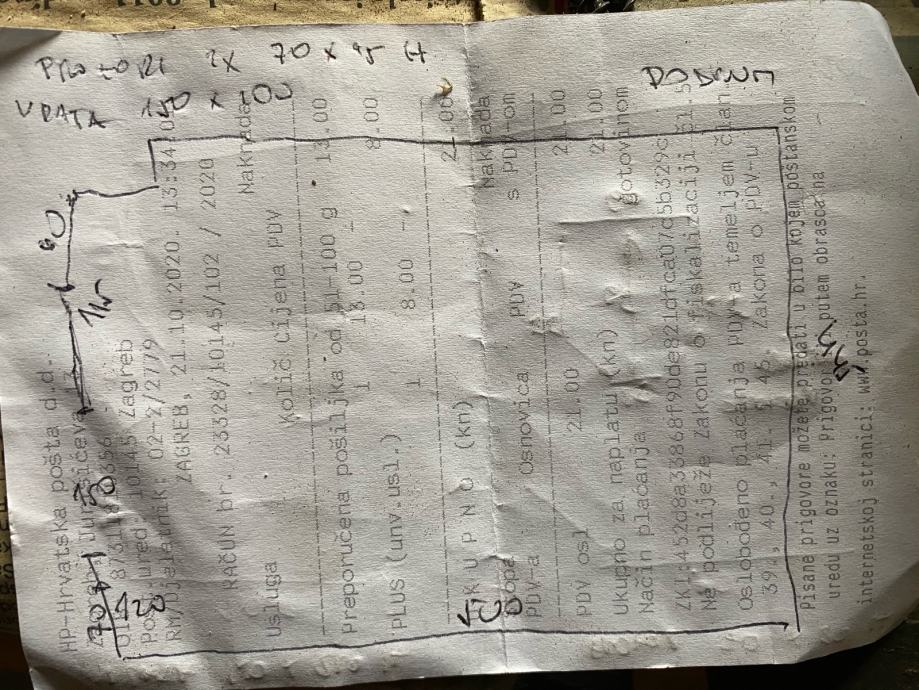 PROZORI 2X 70 X 95 H
VRATA 150 X 100
PODRUM
60
HP-Hrvatska pošta d.d.
10145 Zagreb
02-2/2779
ZAGREB, 21.10.2020. 13:34:0
RAČUN br. 23328/10145/102 / 2020
Usluga Količ. Cijena PDV Naknada
Preporučena pošiljka od 51-100 g
1 13.00 – 13.00
PLUS (unv.usl.)
1 8.00 – 8.00
U K U P N O (kn) 21.00
PDV-a Osnovica PDV Naknada s PDV-om
PDV osl 21.00 21.00
Ukupno za naplatu (kn) 21.00
Način plaćanja gotovinom
Ne podliježe Zakonu o fiskalizaciji čl.5
Oslobođeno plaćanja PDV-a temeljem član.
39., 40., 41. Zakona o PDV-u
Pisane prigovore možete predati u bilo kojem poštanskom
uredu uz oznaku: Prigovor putem obrasca na
internetskoj stranici: www.posta.hr.